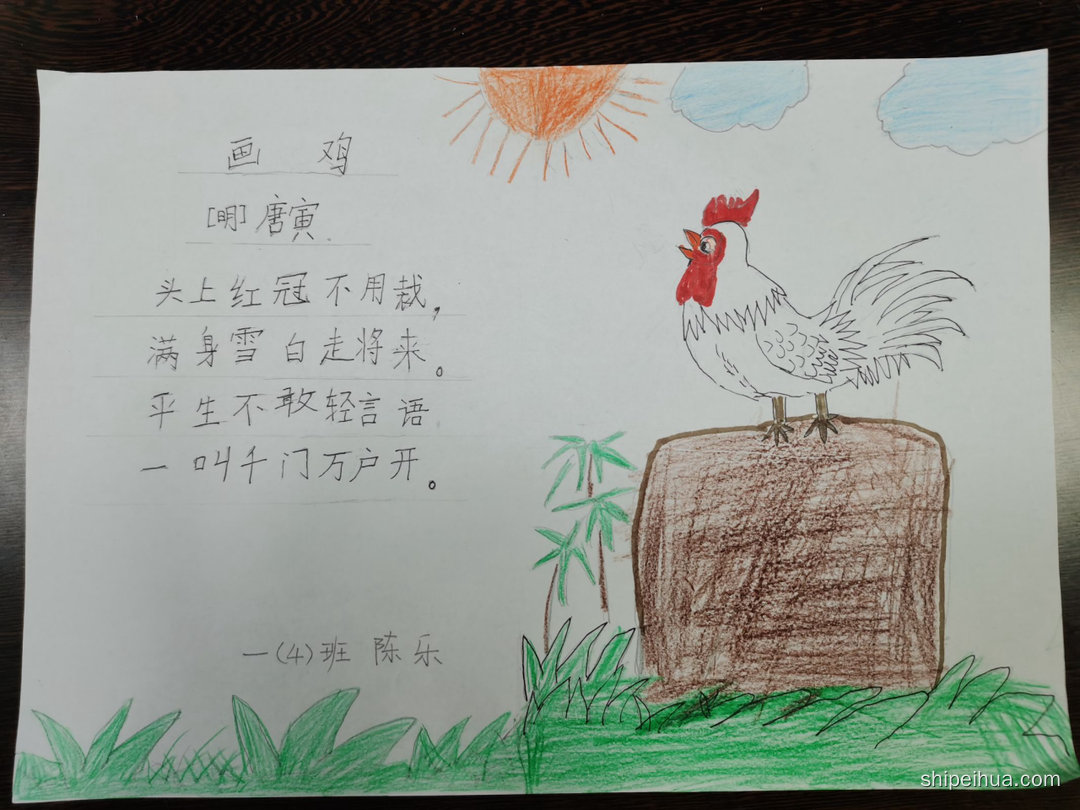 画 鸡
[明]唐寅.
头上红冠不用裁，
满身雪白走将来。
平生不敢轻言语
一叫千门万户开。
一(4)班 陈乐
shipeihua.com